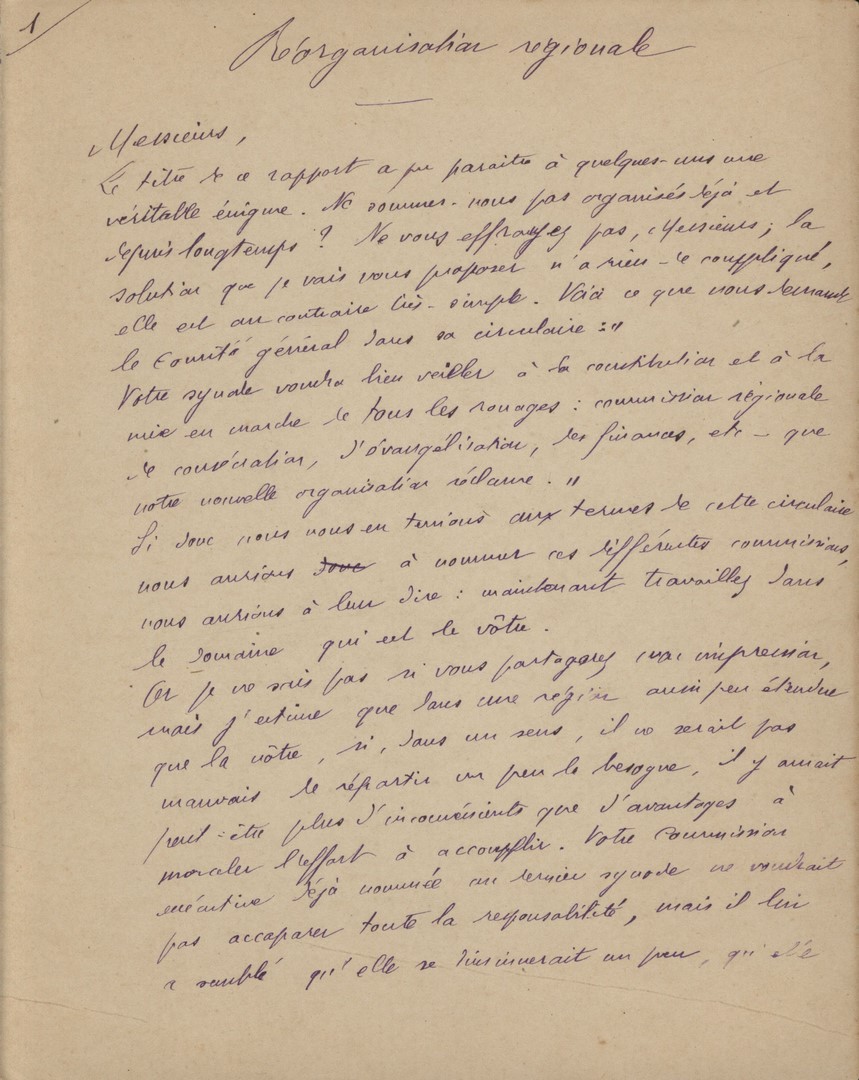 1
Réorganisation régionale
Messieurs,
Le titre de ce rapport a pu paraître à quelques-uns une
véritable énigme. Ne sommes-nous pas organisés déjà et
depuis longtemps ? Ne vous effrayez pas, Messieurs ; la
solution que je vais vous proposer n'a rien de compliqué,
elle est au contraire très-simple. Voici ce que nous demande
le Comité général dans sa circulaire : "
Votre synode voudra bien veiller à la constitution et à la
mise en marche de tous les rouages : commission régionale
de consécration, d'évangélisation, des finances, etc - que
notre nouvelle organisation réclame. "
Si donc nous nous en tenions aux termes de cette circulaire
nous aurions donc à nommer ces différentes commissions,
nous aurions à leur dire : maintenant travaillez dans
le domaine qui est le vôtre.
Or je ne sais pas si vous partagerez mon impression,
mais j'estime que dans une région aussi peu étendue
que la nôtre, si, dans un sens, il ne serait pas
mauvais de répartir un peu la besogne, il y aurait
peut-être plus d'inconvénients que d'avantages à
morceler l'effort à accomplir. Votre commission
exécutive déjà nommée au dernier synode ne voudrait
pas accaparer toute la responsabilité, mais il lui
a semblé qu'elle se un peu, qui